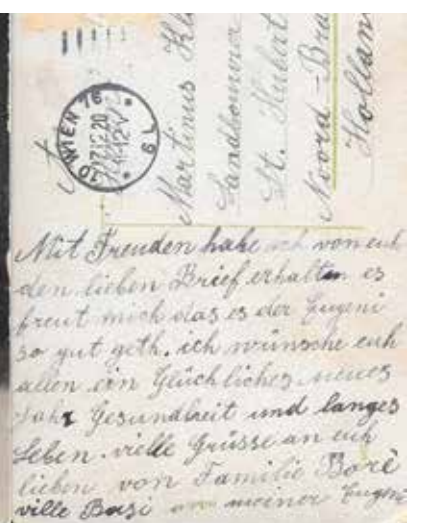 WIEN 76
17.12.20
-12V
Martinus Kl
Landbouwer
St. Hubert
Noord-Bra
Hollan
Mit Freuden habe ich von euh
den lieben Brief erhalten es
freut mich das es der Eugeni
so gut geth. ich wünsche euh
allen ein Glüchliches neues
Jahr Gesundheit und langes
Leben. vielle Grüsse an euh
lieben von Familie Borè
ville Busi an meiner Eugeni